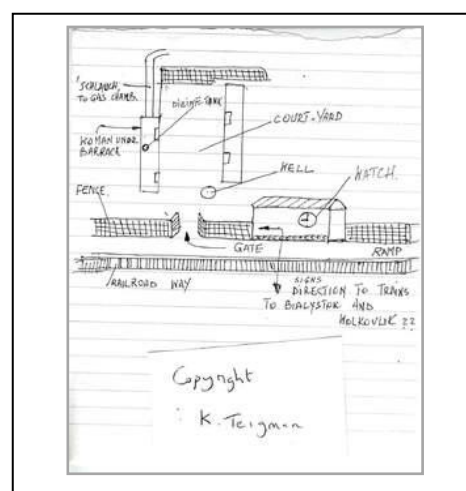 "SCHLAUCH"
TO GAS. CHAMB.
DIGING TANK
COURT-YARD
WOMAN UNDR.
BARRACK
WELL
WATCH.
FENCE.
GATE
RAMP
RAILROAD WAY
SIGNS
DIRECTION TO TRAINS
TO BIALYSTOK AND
WOLKOVLIK ??
Copyright
: K. Teigman